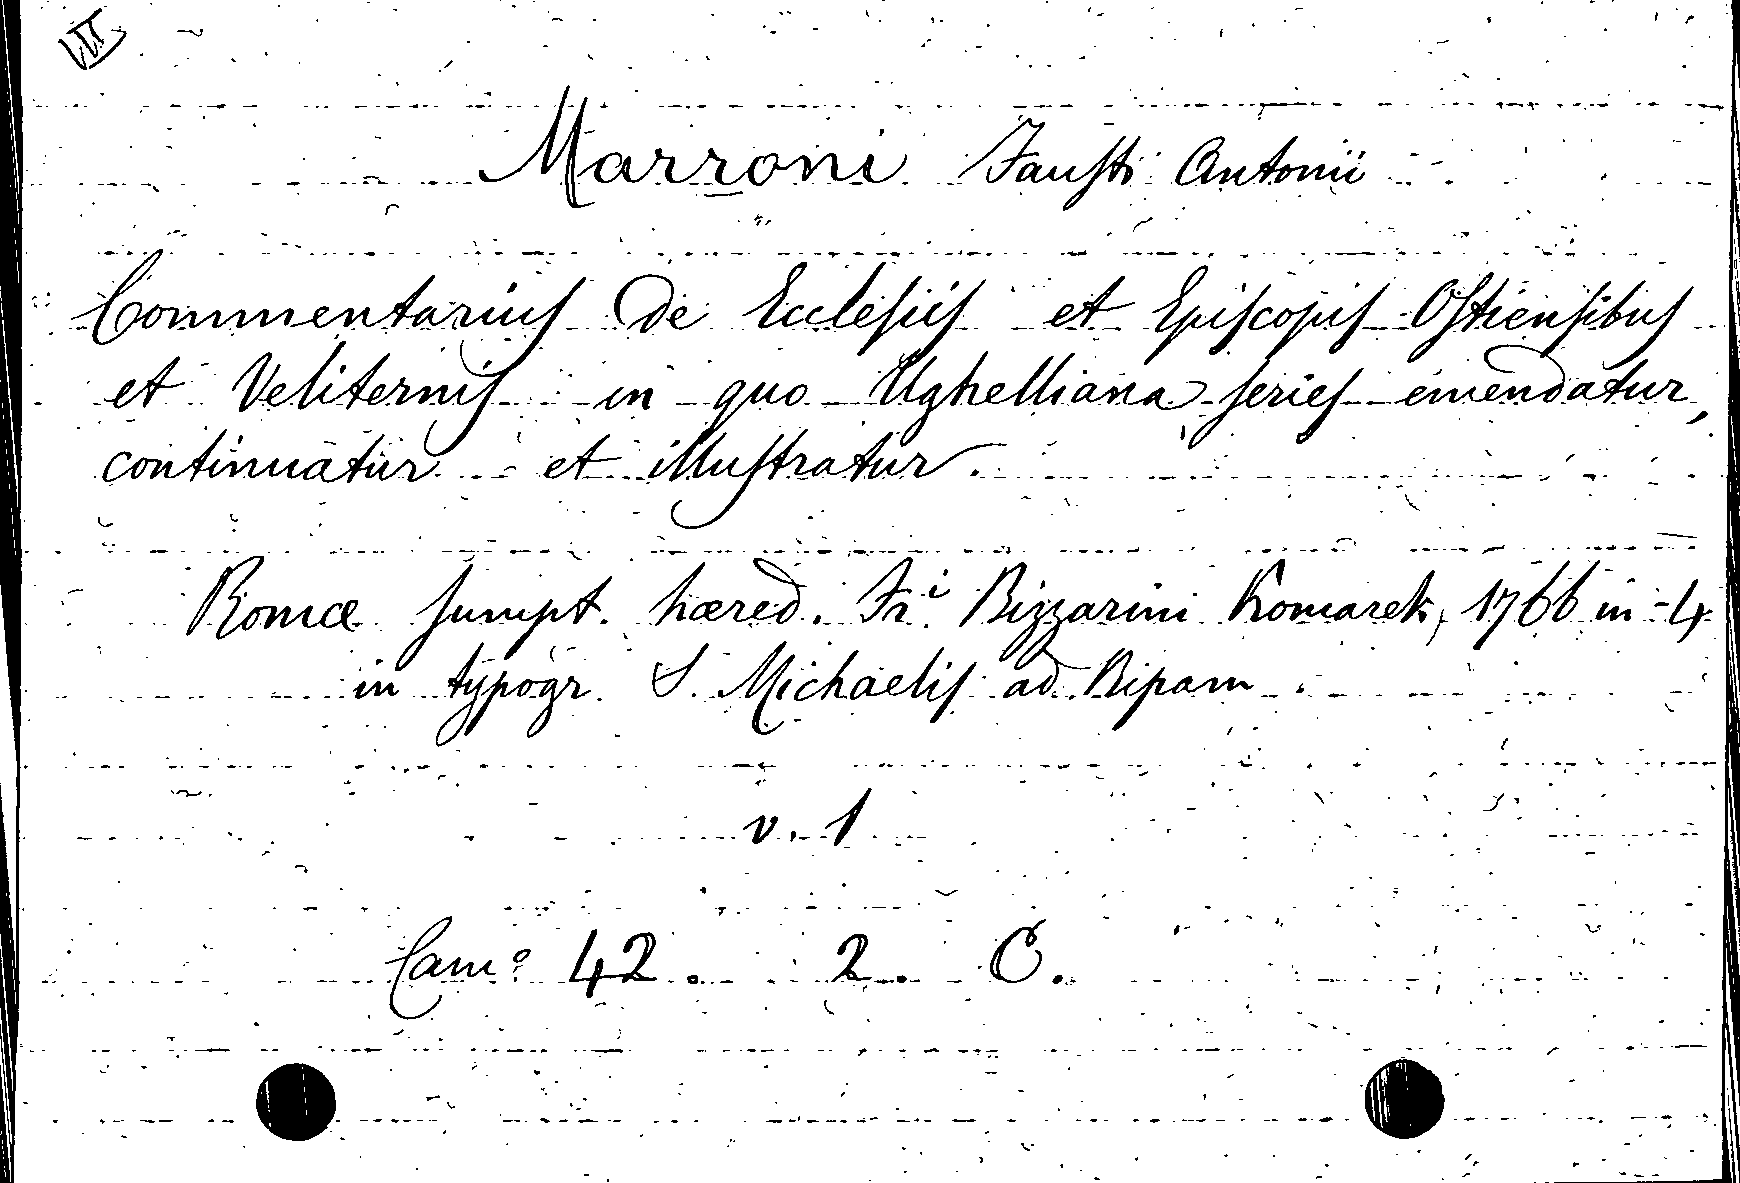 III
Marroni Fausti Antonii
Commentarius de Ecclesiis et Episcopis Ostiensibus
et Veliternis in quo Ughelliana series emendatur,
continuatur et illustratur.
Romæ sumpt. hæred. Fr.i Bizzarini Komarek, 1766 in-4
in typogr. S. Michaelis ad Ripam.
v. 1
Cam.o 42. 2. C.